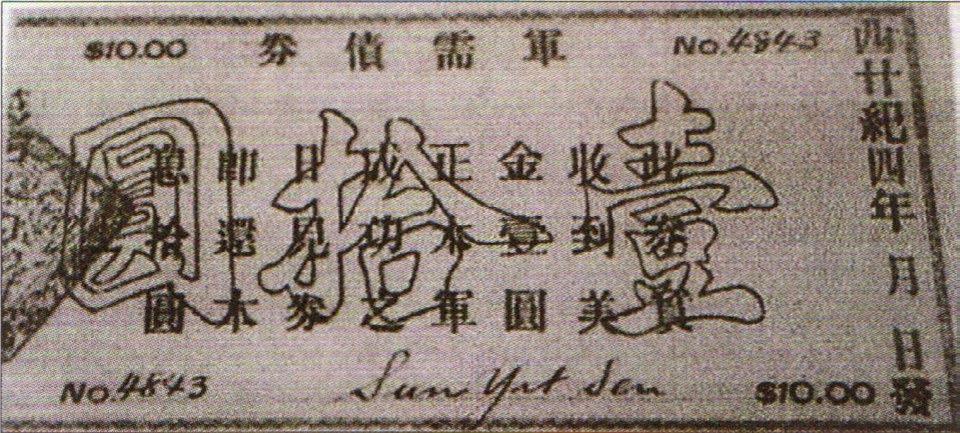 $10.00
軍需債券
No.4843
西廿紀四年 月 日發
壹拾圓
此券實
收到美
金壹圓
正本軍
成功之
日見券
即還本
息拾圓
No.4843
Sun Yat Sen
$10.00